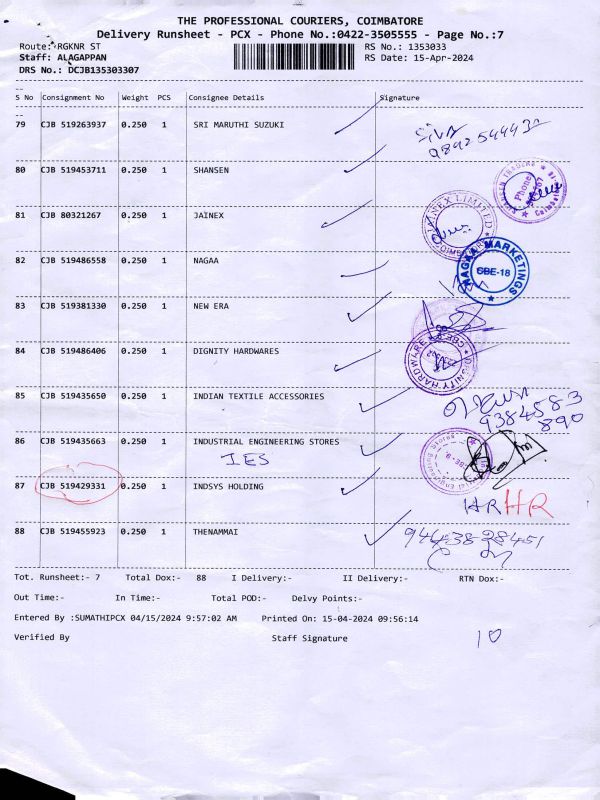 THE PROFESSIONAL COURIERS, COIMBATORE
Delivery Runsheet - PCX - Phone No.:0422-3505555 - Page No.:7
Route: RGKNR ST RS No.: 1353033
Staff: ALAGAPPAN RS Date: 15-Apr-2024
DRS No.: DCJB135303307
--
S No Consignment No Weight PCS Consignee Details Signature
--
79 CJB 519263937 0.250 1 SRI MARUTHI SUZUKI
Siva
80 CJB 519453711 0.250 1 SHANSEN
SHANSEN TRADERS Phone
81 CJB 80321267 0.250 1 JAINEX
JAINEX LIMITED
82 CJB 519486558 0.250 1 NAGAA
NAGAA MARKETINGS CBE-18
83 CJB 519381330 0.250 1 NEW ERA
84 CJB 519486406 0.250 1 DIGNITY HARDWARES
DIGNITY HARDWARE
85 CJB 519435650 0.250 1 INDIAN TEXTILE ACCESSORIES
9384583
890
86 CJB 519435663 0.250 1 INDUSTRIAL ENGINEERING STORES
IES
87 CJB 519429331 0.250 1 INDSYS HOLDING
HR HR
88 CJB 519455923 0.250 1 THENAMMAI
9443828451
Tot. Runsheet:- 7 Total Dox:- 88 I Delivery:- II Delivery:- RTN Dox:-
Out Time:- In Time:- Total POD:- Delvy Points:-
Entered By :SUMATHIPCX 04/15/2024 9:57:02 AM Printed On: 15-04-2024 09:56:14
Verified By Staff Signature
10